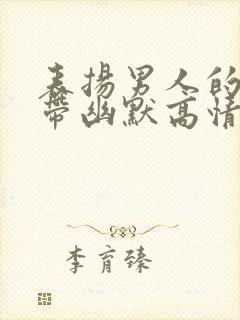 表揚男人的
帶幽默高情
李育臻